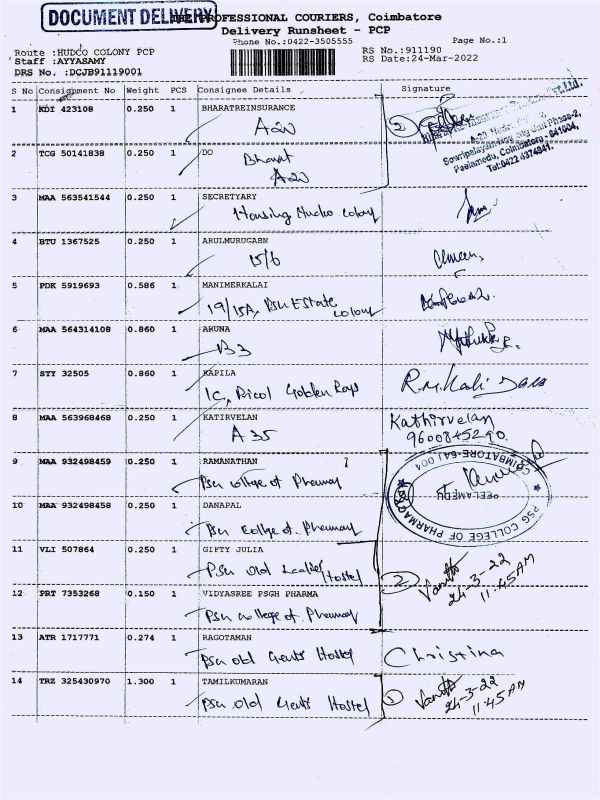 DOCUMENT DELIVERY
THE PROFESSIONAL COURIERS, Coimbatore
Delivery Runsheet - PCP
Phone No.:0422-3505555
Page No.:1
Route :HUDCO COLONY PCP
RS No.:911190
Staff :AYYASAMY
RS Date:24-Mar-2022
DRS No. :DCJB91119001
S No Consignment No Weight PCS Consignee Details Signature
1 KDI 423108 0.250 1 BHARATREINSURANCE
2
Peelamedu, Coimbatore - 641004,
Tel:0422 4374941.
2 TCG 50141838 0.250 1 DO
Bharat
3 MAA 563541544 0.250 1 SECRETYARY
Housing Hudco colony
4 BTU 1367525 0.250 1 ARULMURUGABN
15/6
5 PDK 5919693 0.586 1 MANIMERKALAI
19/15A, Psu Estate
colony
6 MAA 564314108 0.860 1 ARUNA
B3
7 STY 32505 0.860 1 KAPILA
1C, Ricol Golden
8 MAA 563968468 0.250 1 KATIRVELAN
A 35
Kathirvelan
9600845290.
9 MAA 932498459 0.250 1 RAMANATHAN
Psu college of Pharmay
PSG COLLEGE OF PHARMACY
PEELAMEDU
COIMBATORE-641 004
10 MAA 932498458 0.250 1 DANAPAL
Psu college of Pharmay
11 VLI 507864 0.250 1 GIFTY JULIA
Psu old Ladies
Hostel
2
24-3-22
11:45AM
12 PRT 7353268 0.150 1 VIDYASREE PSGH PHARMA
Psu college of Pharmay
13 ATR 1717771 0.274 1 RAGOTAMAN
Psu old Gents Hostel
Christina
14 TRZ 325430970 1.300 1 TAMILKUMARAN
Psu old Gents Hostel
1
24-3-22
11:45 AM